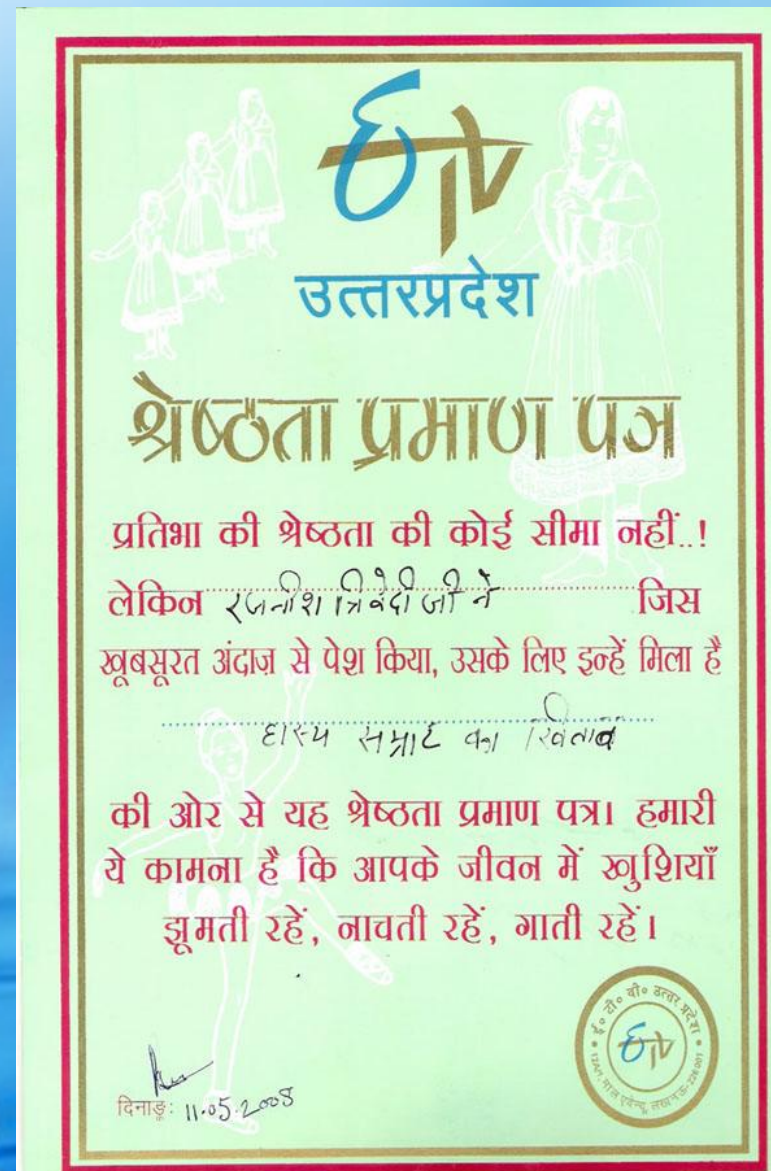 ETV
उत्तरप्रदेश
श्रेष्ठता प्रमाण पत्र
प्रतिभा की श्रेष्ठता की कोई सीमा नहीं..!
लेकिन रजनीश त्रिवेदी जी ने जिस
खूबसूरत अंदाज़ से पेश किया, उसके लिए इन्हें मिला है
हास्य सम्राट का खिताब
की ओर से यह श्रेष्ठता प्रमाण पत्र। हमारी
ये कामना है कि आपके जीवन में खुशियाँ
झूमती रहें, नाचती रहें, गाती रहें।
दिनाङ्क: 11.05.2008
ई० टी० वी० उत्तर प्रदेश
ETV
माल एवेन्यू, लखनऊ-226001